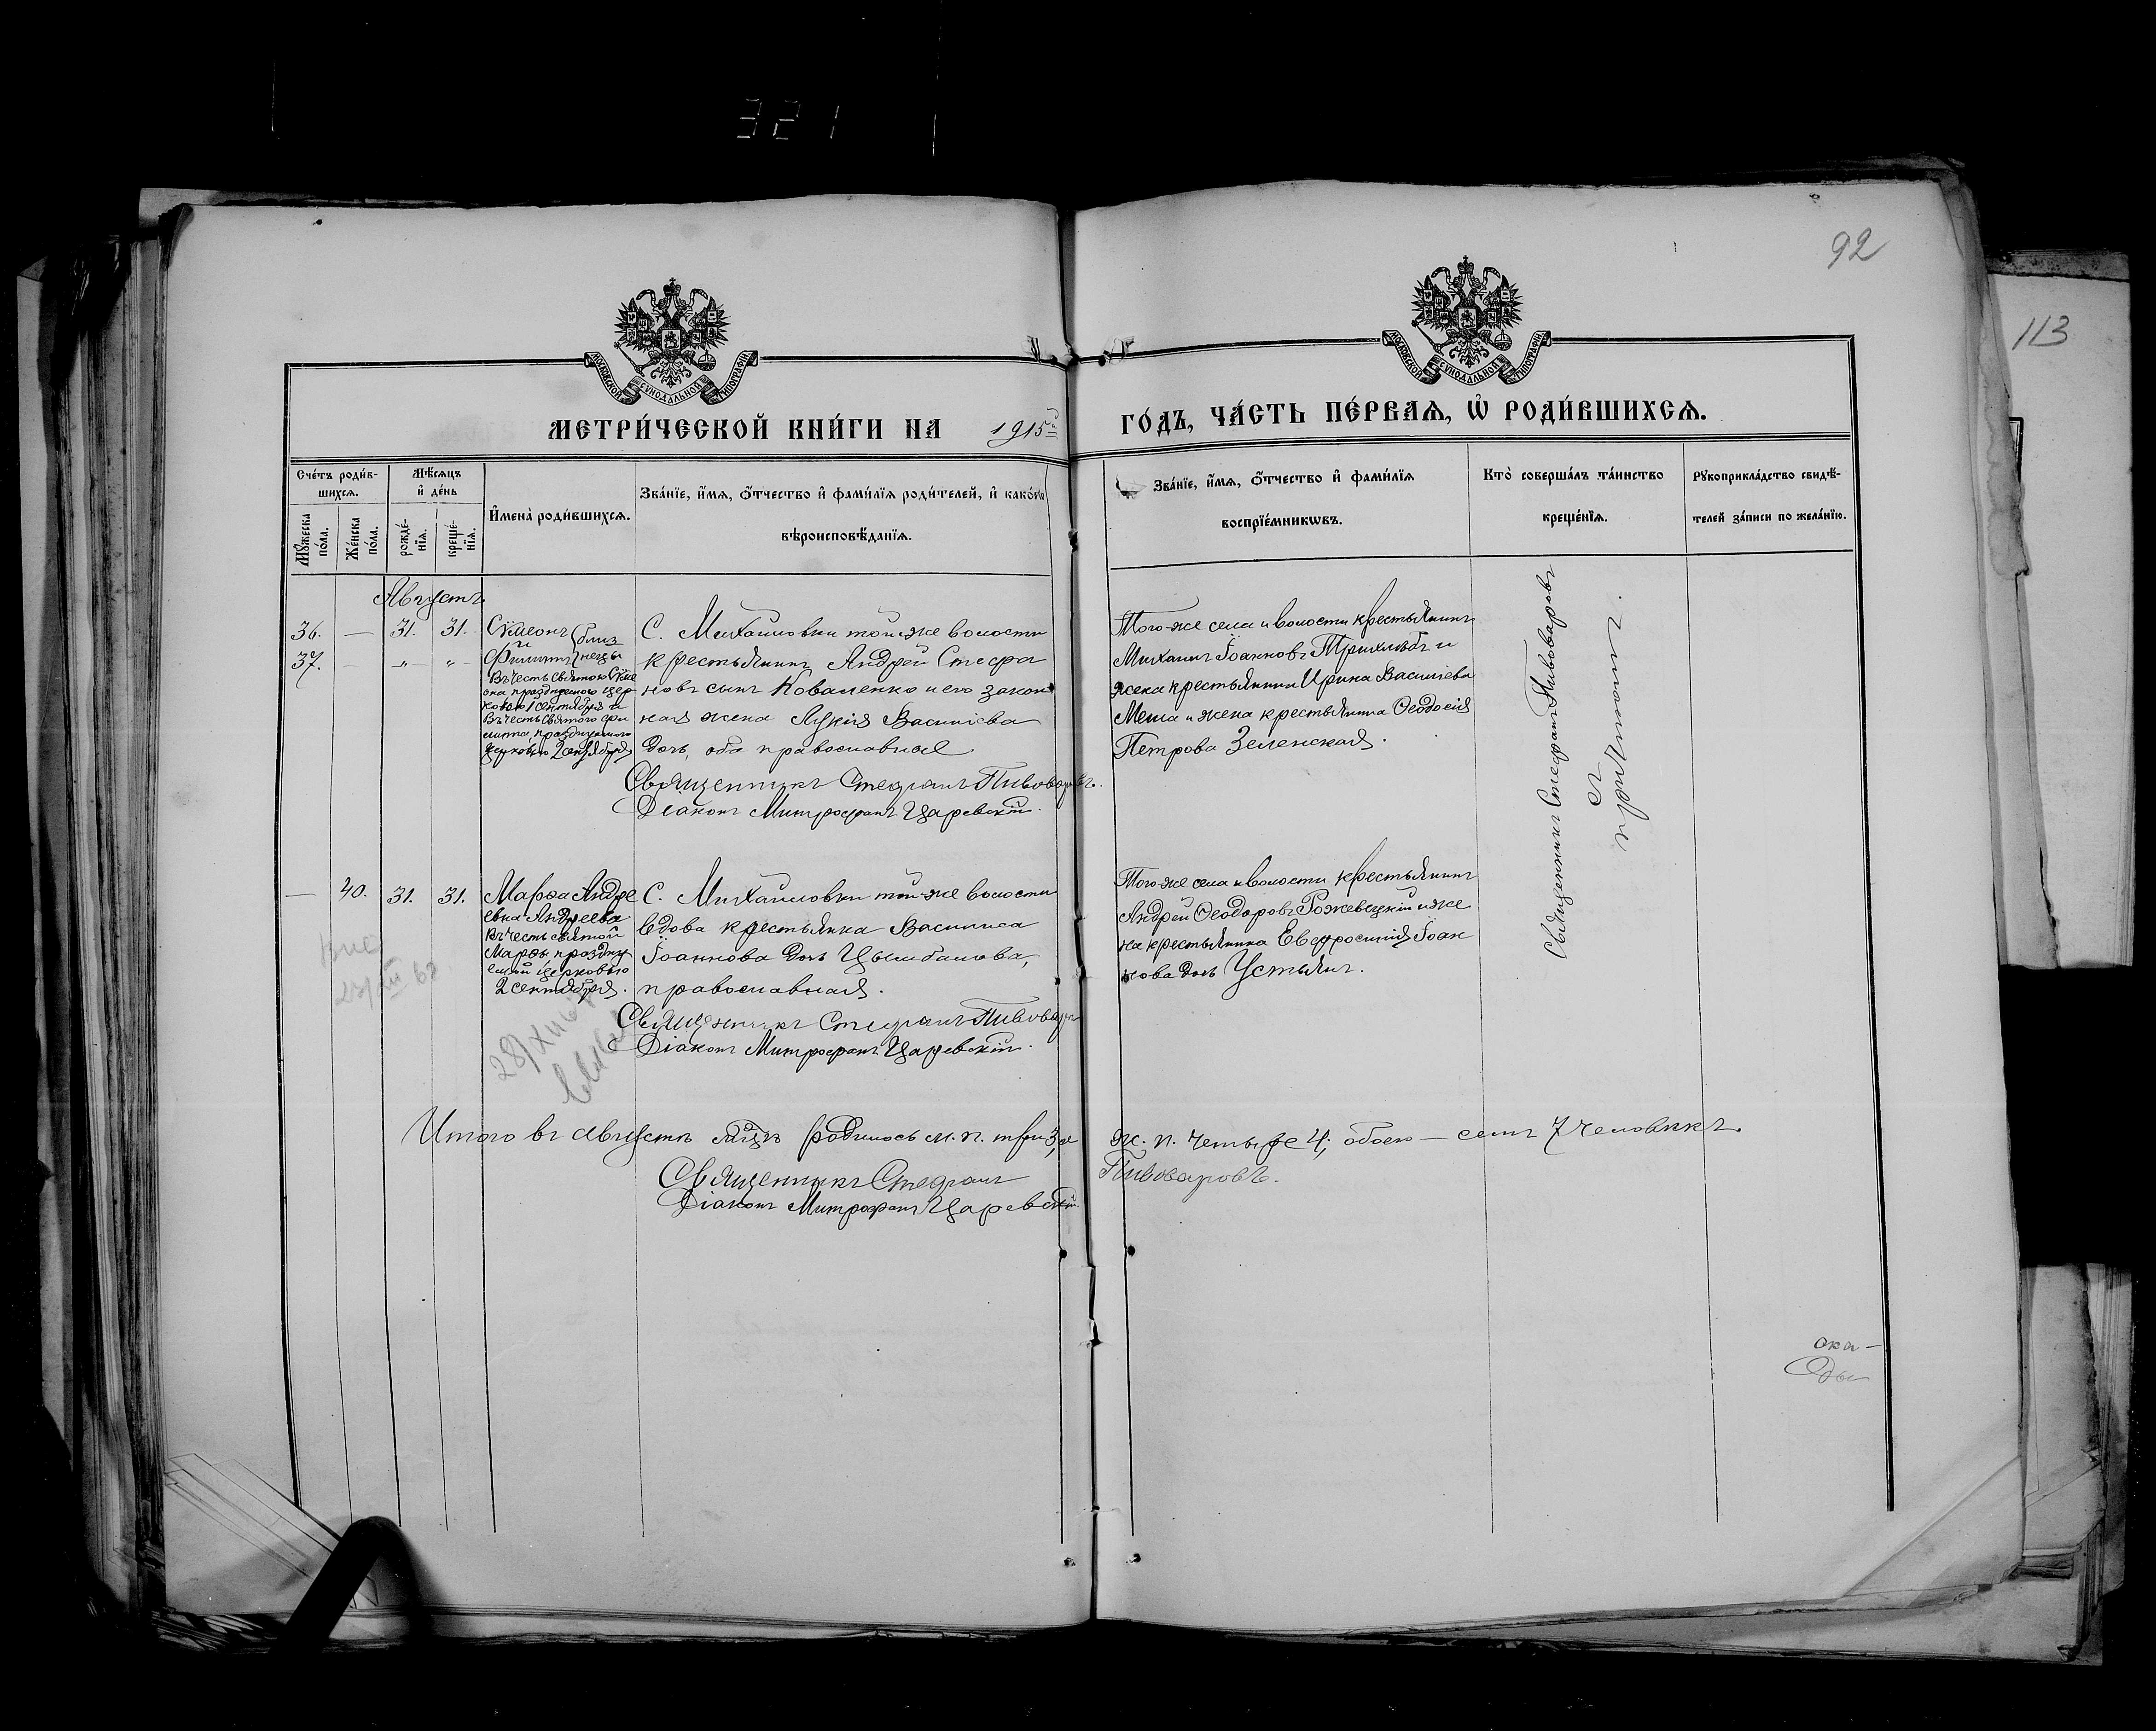 321
92
113
МОСКОВСКОЙ СѴНОДАЛЬНОЙ ТИПОГРАФІИ
МОСКОВСКОЙ СѴНОДАЛЬНОЙ ТИПОГРАФІИ
МЕТРИ́ЧЕСКОЙ КНИ́ГИ НА 1915й ГО́ДЪ, ЧА́СТЬ ПЕ́РВАѦ, Ѡ҆ РОДИ́ВШИХСѦ.
Сче́тъ роди́в-
шихсѧ.
Мѣ́сѧцъ
и҆ де́нь
Мꙋ́жеска
по́ла.
Же́нска
по́ла.
рожде́-
нїѧ.
креще́-
нїѧ.
И҆мена̀ роди́вшихсѧ.
Зва́нїе, и҆́мѧ, ѻ҆́тчество и҆ фами́лїѧ роди́телей, и҆ како́гѡ
вѣроисповѣ́данїѧ.
Зва́нїе, и҆́мѧ, ѻ҆́тчество и҆ фами́лїѧ
воспрїе́мникѡвъ.
Кто̀ соверша́лъ та́инство
креще́нїѧ.
Рꙋкоприкла́дство свидѣ́-
телей за́писи по жела́нїю.
Августъ.
36. — 31. 31.
37. — „ — „ —
Сѵмеонъ
и
Филиппъ
близ
нецы
Въ честь святого Сѵме
она празднуемого цер
ковью 1 сентября и
Въ честь святого Фи
липпа, празднуемого
церковью 2 сентября
С. Михайловки той-же волости
крестьянинъ Андрей Стефа
новъ сынъ Коваленко и его закон
ная жена Лукія Василіева
дочь, оба православные.
Священникъ Стефанъ Пивоваровъ.
Діаконъ Митрофанъ Царевскій.
Того-же села и волости крестьянинъ
Михаилъ Іоанновъ и
жена крестьянина Ирина Василіева
Меша и жена крестьянина Ѳеодосія
Петрова Зеленская.
Священникъ Стефанъ Пивоваровъ
съ
причтомъ.
— 40. 31. 31.
Марѳа Андре
евна Андреева
Въ честь святой
Марѳы, праздну
емой церковью
2 сентября.
С. Михайловки той-же волости
вдова крестьянка Василиса
Іоаннова дочь Цымбалова,
православная.
Священникъ Стефанъ Пивоваровъ
Діаконъ Митрофанъ Царевскій.
Того-же села и волости крестьянинъ
Андрей Ѳеодоровъ Рожевецкій и же
на крестьянина Евфросинія Іоан
нова дочь Устьянъ.
Итого въ августѣ мѣсяцѣ родилось м. п. три 3, и ж. п. четыре 4, обоего — семь 7 человѣкъ.
Священникъ Стефанъ Пивоваровъ.
Діаконъ Митрофанъ Царевскій.